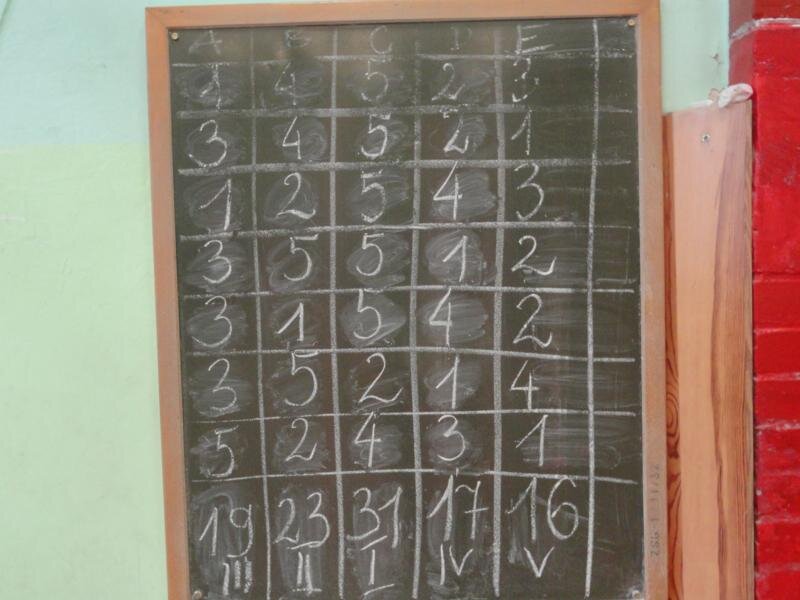 A B C D E
1 4 5 2 3
3 4 5 2 1
1 2 5 4 3
3 5 5 1 2
3 1 5 4 2
3 5 2 1 4
5 2 4 3 1
19 23 31 17 16
III II I IV V